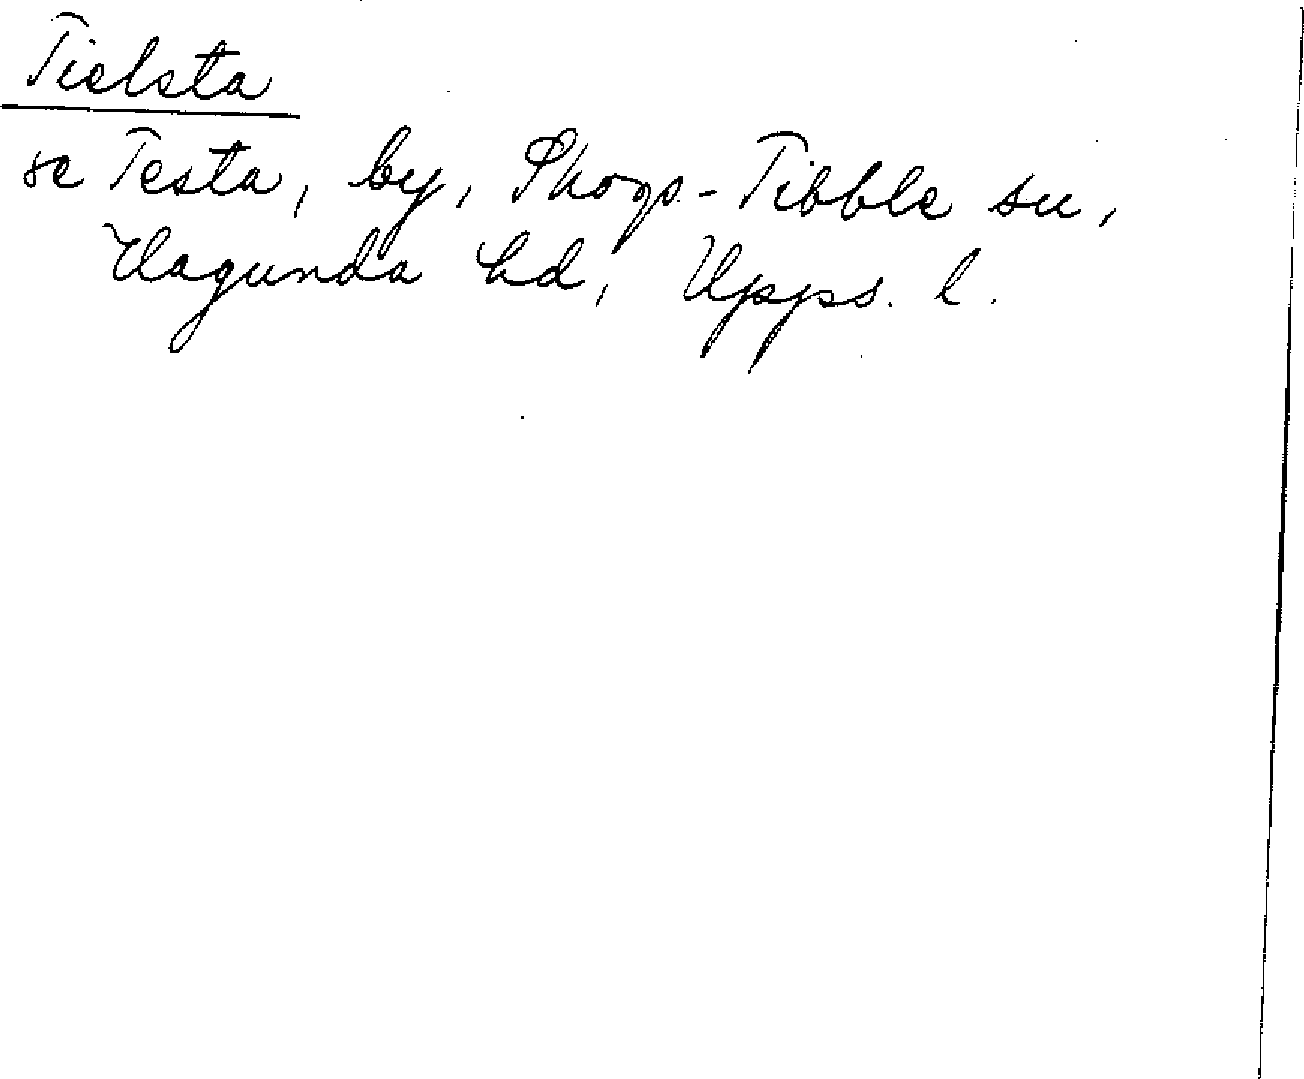 Tielsta
se Testa, by, Skogs-Tibble sn,
Hagunda hd, Upps. l.